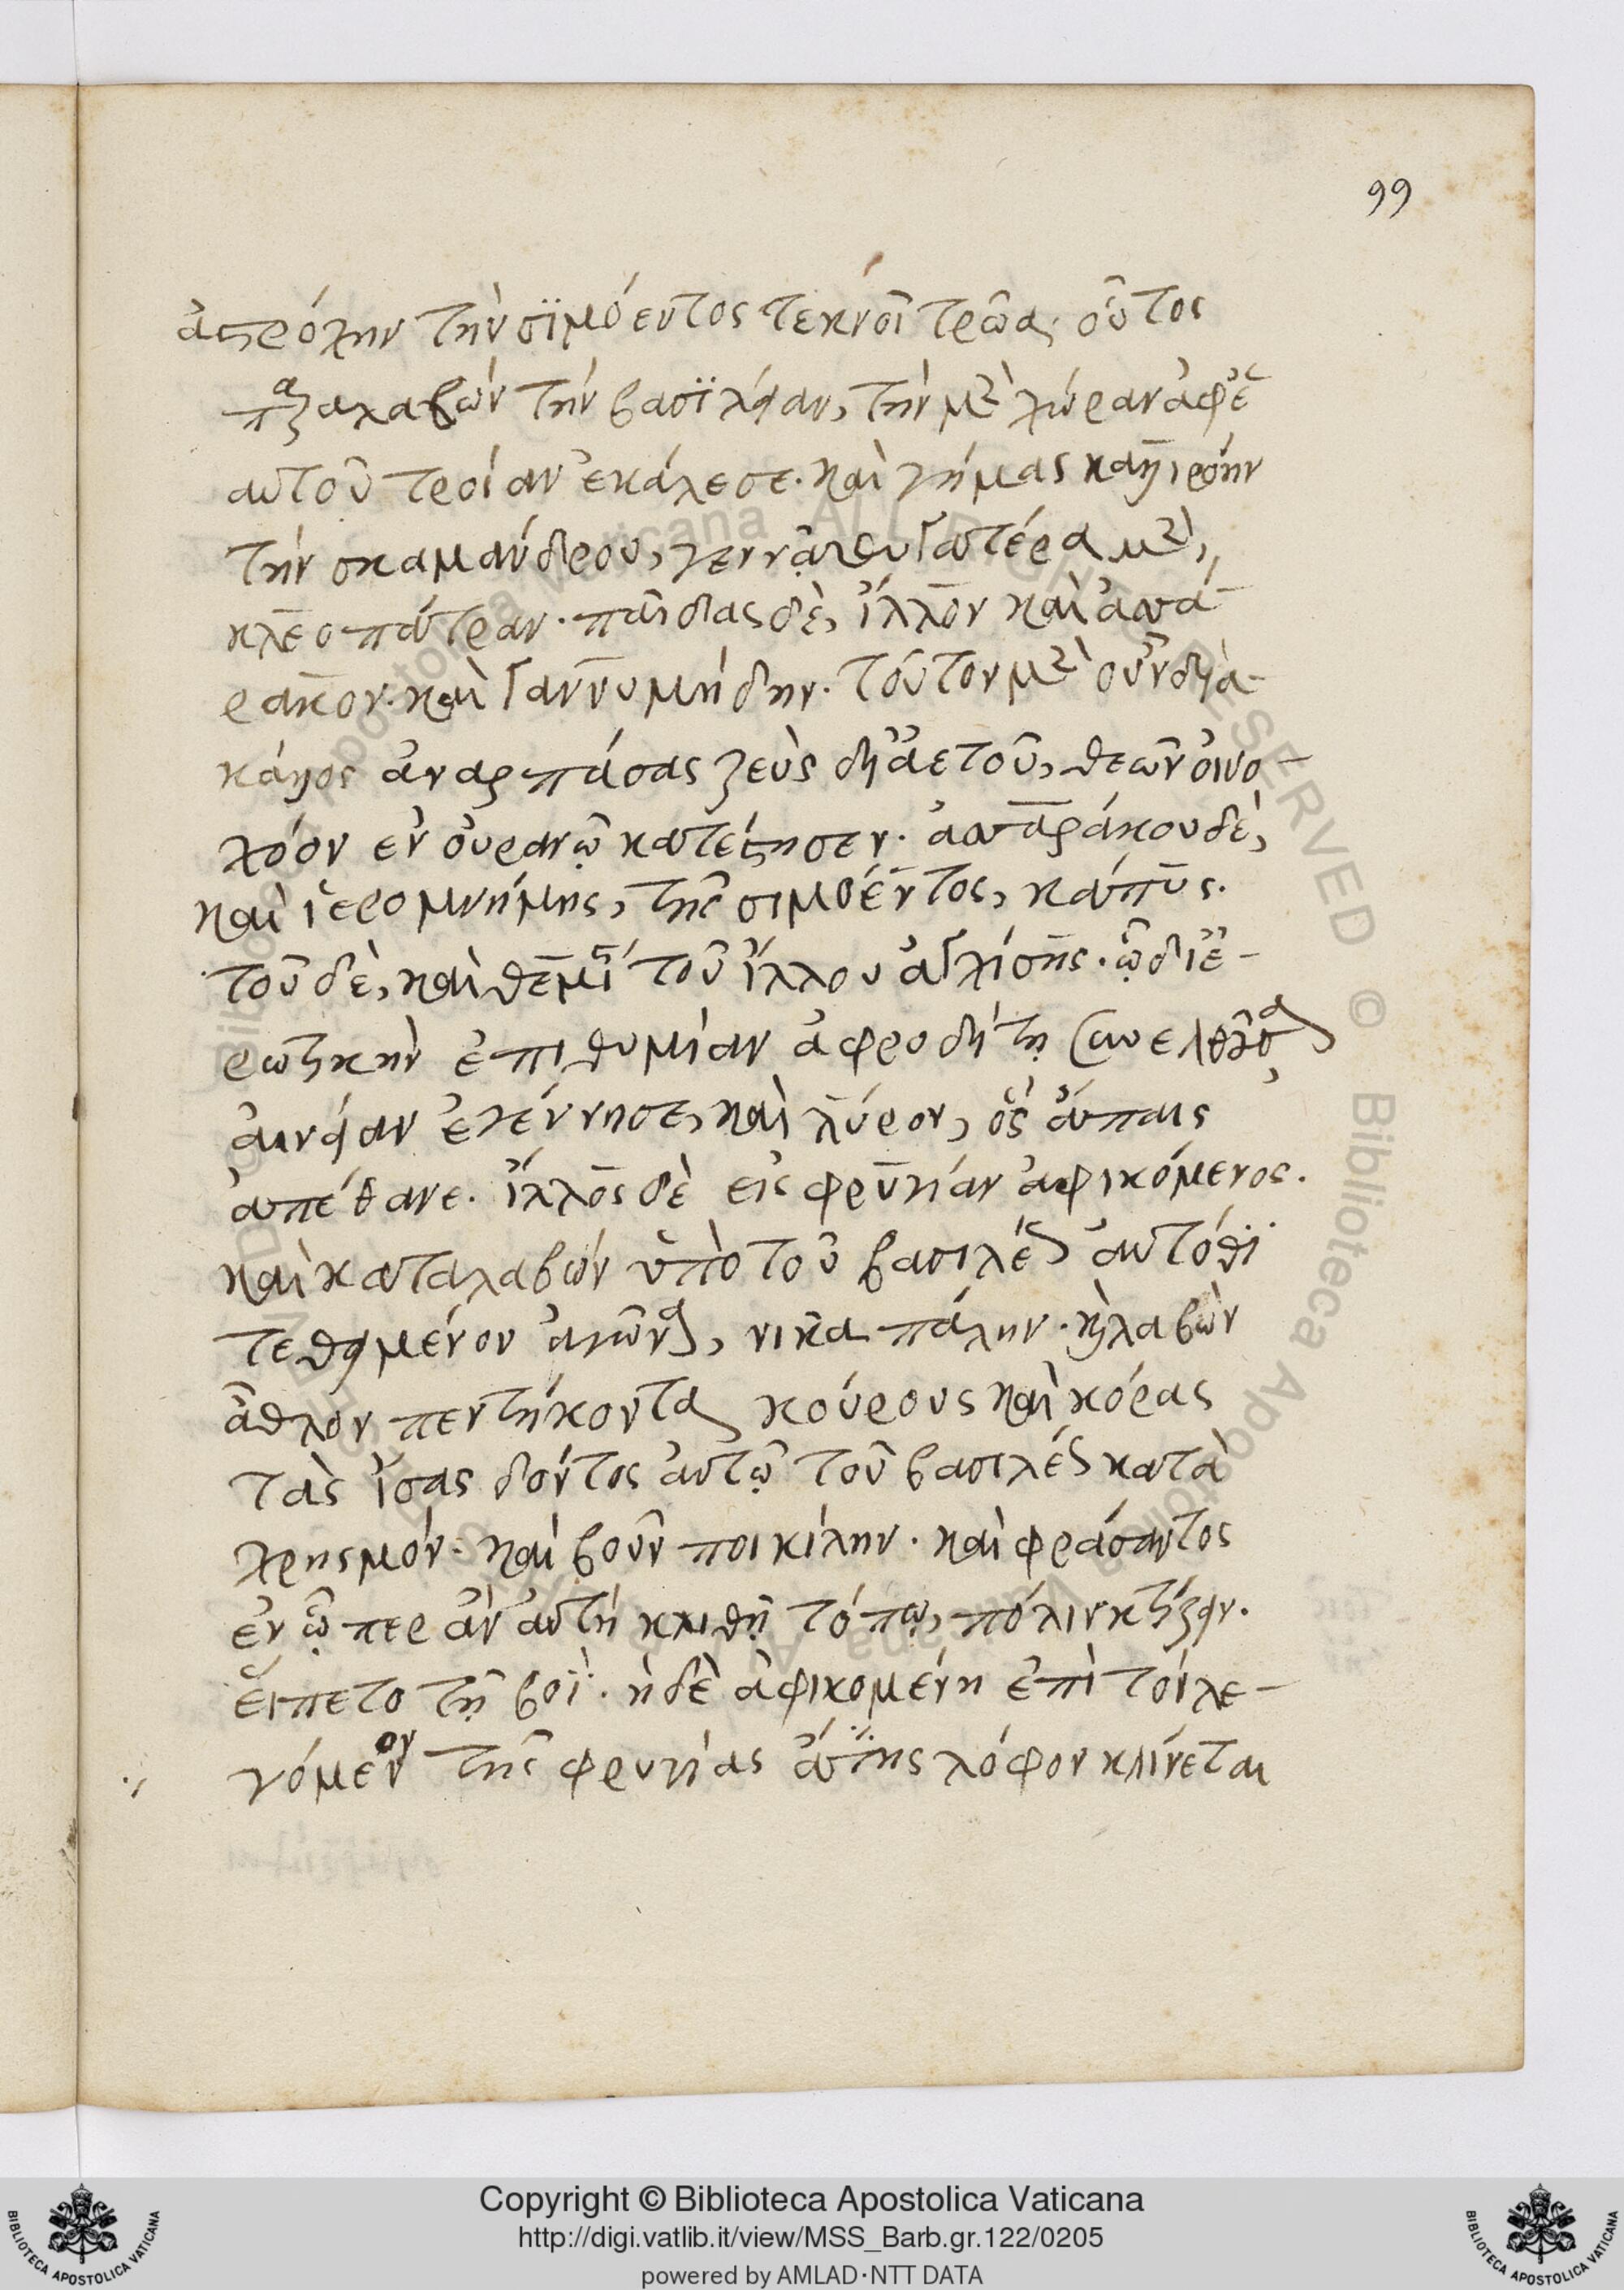 99
ἀστρόχην τὴν σϊμόεντος τεκνοῖ τρῶα· οὗτος
παραλαβὼν τὴν βασϊλείαν, τὴν μὲν χώραν ἀφ' ἑ
αυτοῦ τροίαν ἐκάλεσε. καὶ γήμας καλιρόην
τὴν σκαμάνδρου, γεννᾷ θυγατέρα μὲν,
κλεοπάτραν. παῖδας δὲ, ἴλλον καὶ ἀσσά-
ρακον. καὶ γαννυμήδην. τοῦτον μὲν οὖν διὰ
κάλλος ἀναρπάσας ζεὺς δι' ἀετοῦ, θεῶν οἰνο-
χόον ἐν οὐρανῷ κατέστησεν. ἀσσαράκου δὲ,
καὶ ἱερομνήμης, τῆς σιμόεντος, κάπυς.
τοῦ δὲ, καὶ θέμις τοῦ ἴλλου ἀγχίσης. ᾧ δι' ἐ-
ρωτικὴν ἐπιθυμίαν ἀφροδίτη συνελθοῦσα
αἰνείαν ἐγέννησε, καὶ λύρον, ὃς ἄπαις
ἀπέθανε. ἴλλος δὲ εἰς φρυγίαν ἀφικόμενος.
καὶ καταλαβὼν ὑπὸ τοῦ βασιλέως αὐτόθϊ
τεθειμένον ἀγῶνα, νικᾶ πάλην. καὶ λαβὼν
ἆθλον πεντήκοντα κούρους καὶ κόρας
τὰς ἴσας δόντος αὐτῷ τοῦ βασιλέως κατὰ
χρησμόν. καὶ βοῦν ποικίλην. καὶ φράσαντος
ἐν ᾧπερ ἂν αὐτὴ κλιθῇ τόπῳ, πόλιν κτίζειν.
εἵπετο τῇ βοΐ. ἡ δὲ ἀφικομένη ἐπὶ τὸν λε-
γόμενον τῆς φρυγίας ἄτης λόφον κλίνεται
Copyright © Biblioteca Apostolica Vaticana
http://digi.vatlib.it/view/MSS_Barb.gr.122/0205
powered by AMLAD·NTT DATA
BIBLIOTECA APOSTOLICA VATICANA
BIBLIOTECA APOSTOLICA VATICANA